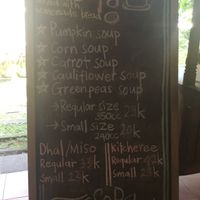 served with
homemade bread
☆ Pumpkin soup
☆ Corn soup
☆ Carrot soup
☆ Cauliflower soup
☆ Greenpeas soup
→ Regular size
350cc 25k
→ Small size
240cc 20k
Dhal/Miso
Regular 33k
Small 23k
Kitcheree
Regular 42k
Small 28k